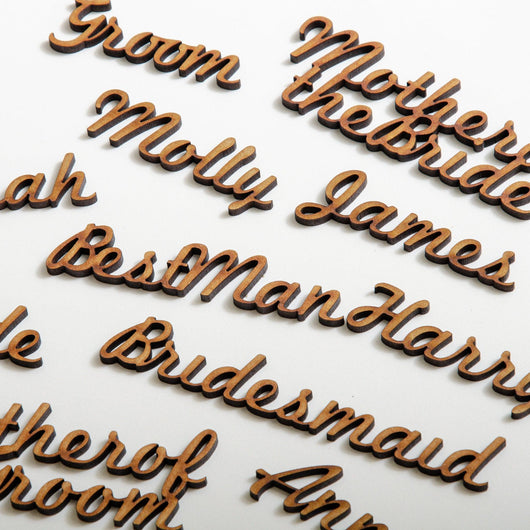 Groom
Mother of
the Bride
Molly
James
ah
Best Man
Harry
Bridesmaid
therof
room
Ann